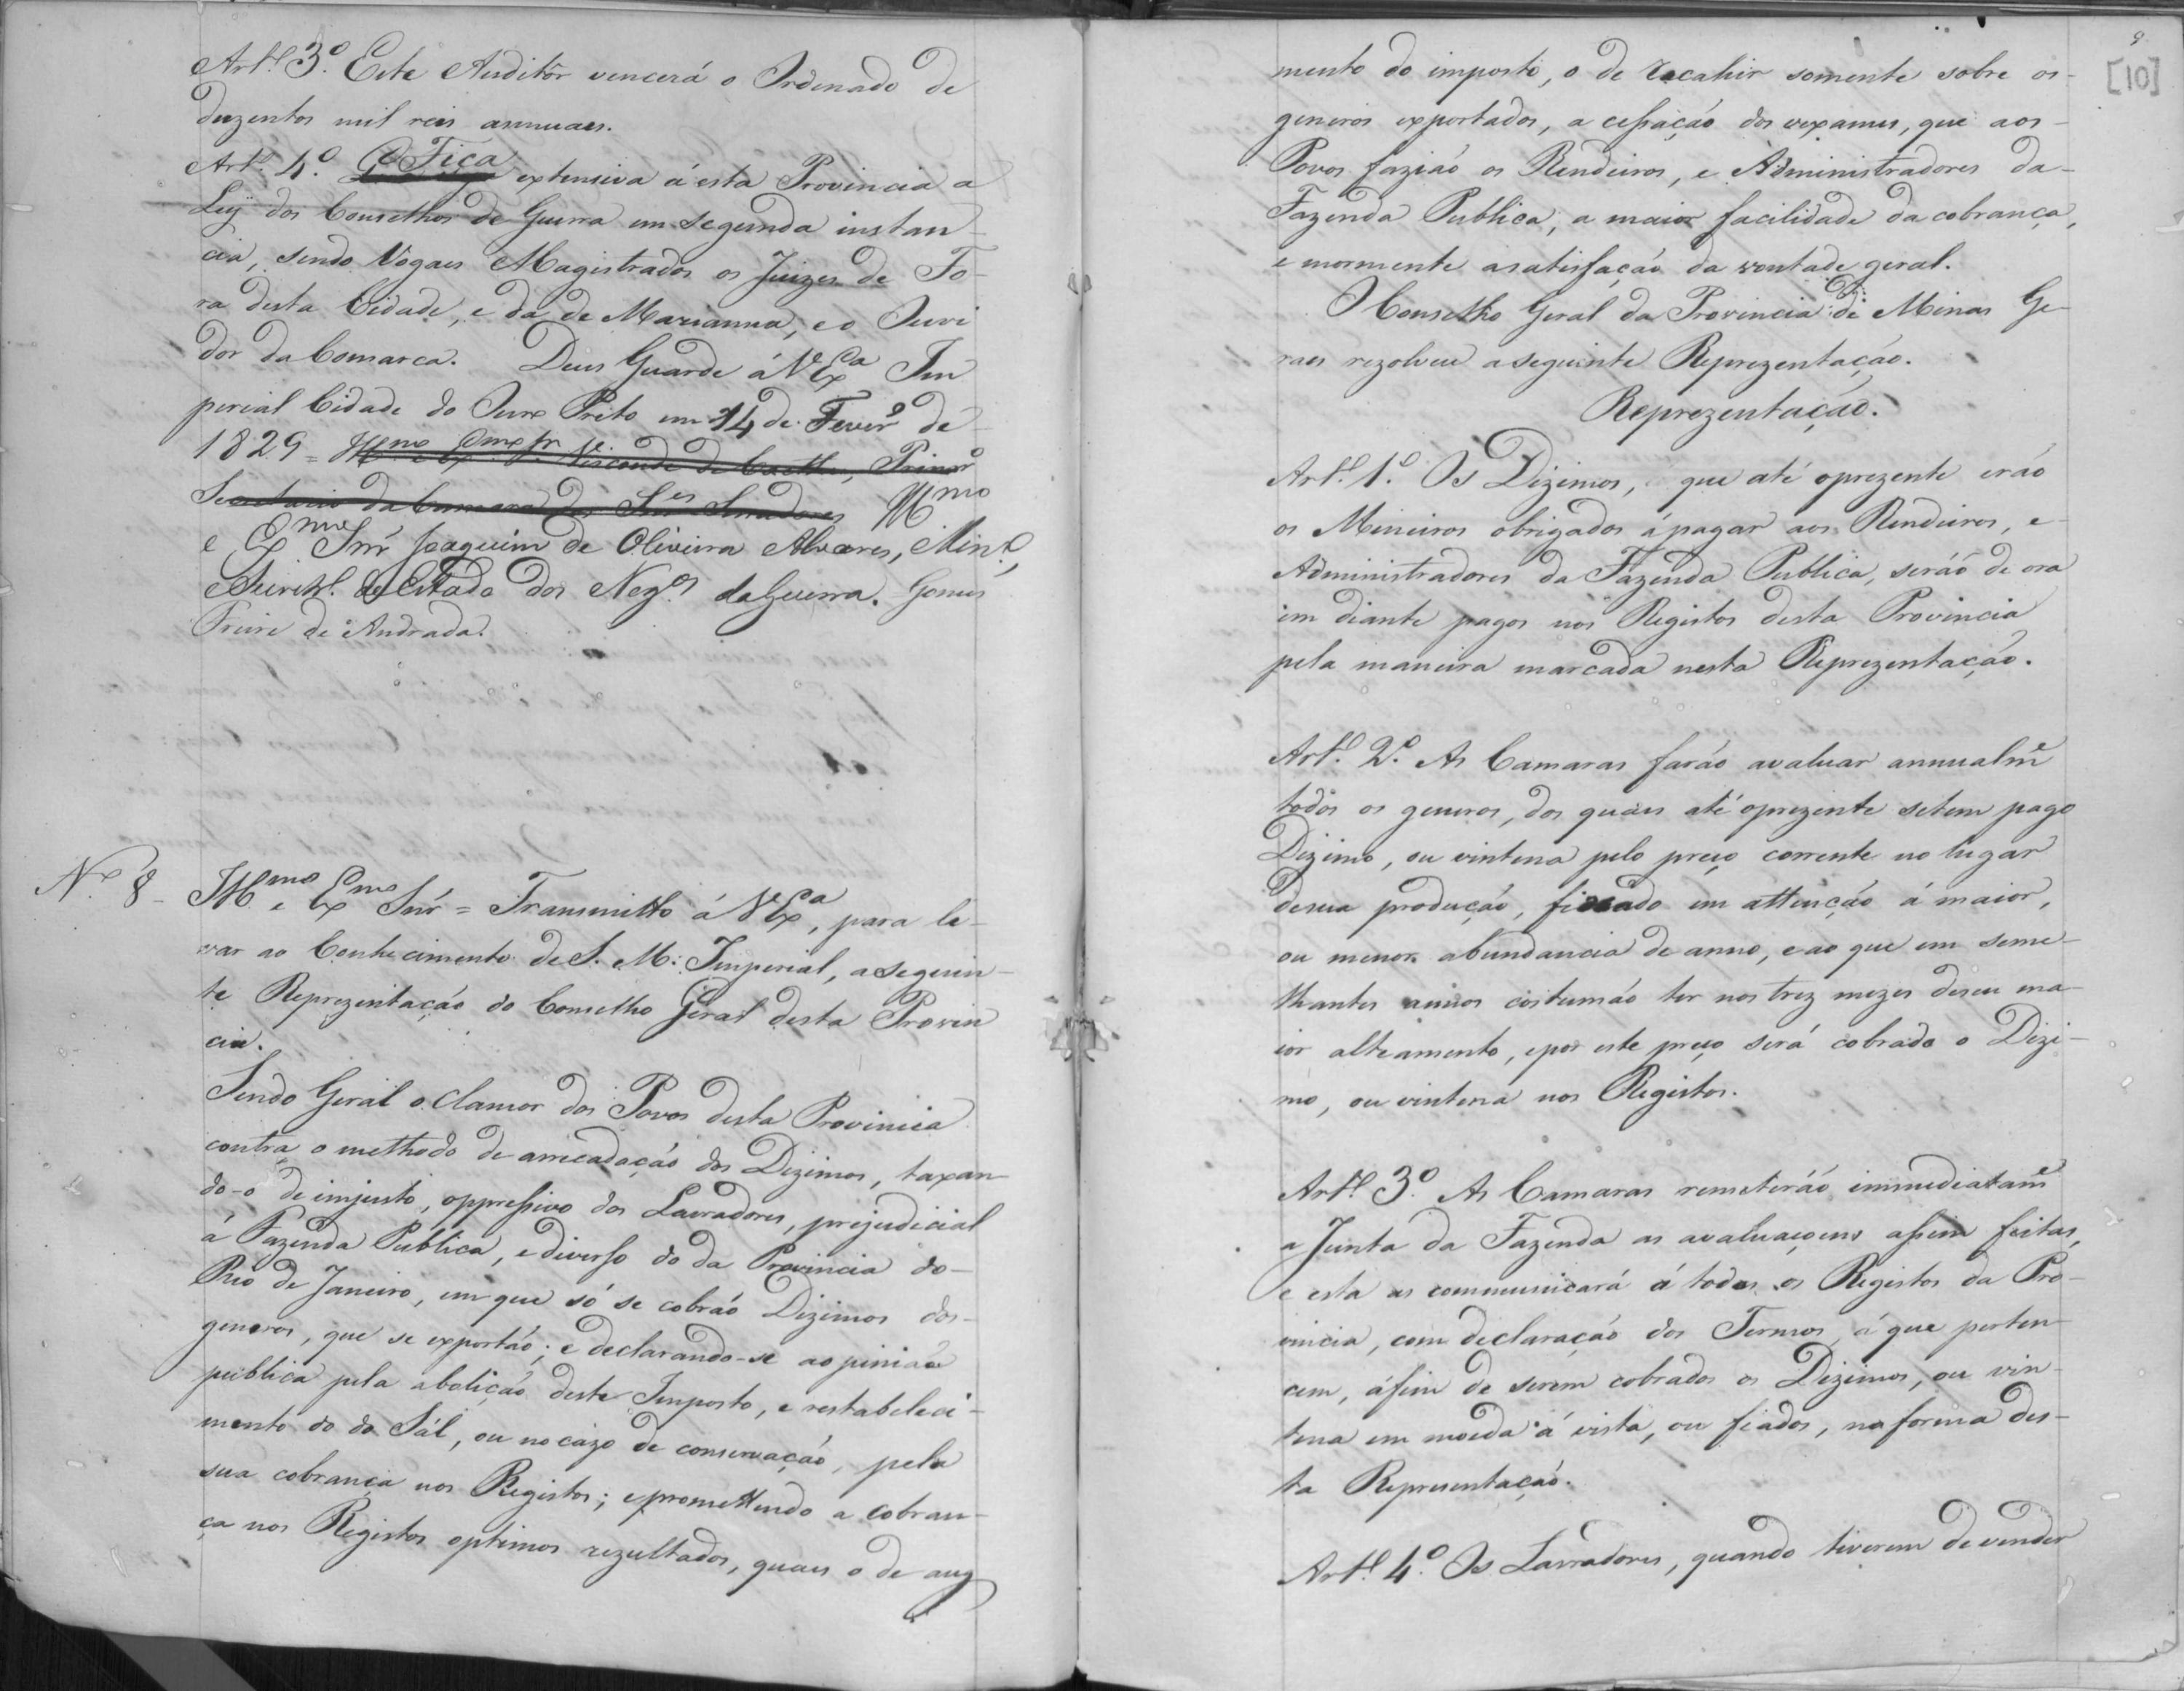 Art.º 3.º Este Auditôr vencerá o Ordenado de
duzentos mil reis annuaes.
Art.º 4.º Fica extensiva á esta Provincia a
Ley dos Conselhos de Guerra em segunda instan-
cia, sendo Vogaes Magistrados os Juizes de Fo-
ra desta Cidade, e da de Marianna, e o Ouvi
dor da Comarca. Deus Guarde á V. Ex.ª Im
perial Cidade do Ouro Preto em 14 de Fever.º de
1829 = Ill.mo e Ex.mo Sr. Visconde de Caethe, Primr.º
Secretario da Camara dos Sr.es Senadores Ill.mo
e Ex.mo Snr. Joaquim de Oliveira Alvares, Min.º,
e Secretr.º de Estado dos Neg.os da Guerra. Gomes
Freire de Andrada.
N.º 8 - Ill.mo e Ex.mo Snr. = Transmitto á V. Ex.ª, para le-
var ao Conhecimento de S. M. Imperial, a seguin-
te Reprezentação do Conselho Geral desta Provin
cia.
Sendo Geral o clamor dos Povos desta Provincia
contra o methodo de arrecadação dos Dizimos, taxan-
do-o de injusto, oppressivo dos Lavradores, prejudicial
á Fazenda Publica, e diverso do da Provincia do-
Rio de Janeiro, em que só se cobráo Dizimos dos-
generos, que se exportáo; e declarando-se a opiniáo
publica pela aboliçáo deste Imposto, e restabeleci-
mento do do Sál, ou no cazo de conservaçáo, pela
sua cobrança nos Registos; e promettendo a cobran-
ça nos Registos optimos rezultados, quaes o de aug
9
[10]
mento do imposto, o de recahir somente sobre os-
generos exportados, a cessaçáo dos vexames, que aos-
Povos faziáo os Rendeiros, e Administradores da-
Fazenda Publica, a maior facilidade da cobrança,
e mormente a satisfaçáo da vontade geral.
O Conselho Geral da Provincia de Minas Ge-
raes rezolveu a seguinte Reprezentaçáo.
Reprezentaçáo.
Art.º 1.º Os Dizimos, que até o prezente eráo
os Mineiros obrigados á pagar aos Rendeiros, e-
Administradores da Fazenda Publica, seráõ de ora
em diante pagos nos Registos desta Provincia
pela maneira marcada nesta Reprezentaçáo.
Art.º 2.º As Camaras faráo avaluar annualm.e
todos os generos, dos quaes até o prezente se tem pago
Dizimo, ou vintena pelo preço corrente no lugar
de sua produçáo, ficando em attençáo á maior,
ou menor abundancia de anno, e ao que em seme-
lhantes annos costumáo ter nos trez mezes de seu ma-
ior alteamento, e por este preço será cobrado o Dizi-
mo, ou vintena nos Registos.
Art.º 3.º As Camaras remeteráõ immediatam.e
a Junta da Fazenda as avaluaçoens assim feitas,
e esta as communicará á todos os Registos da Pro-
vincia, com declaraçáo dos Termos, á que perten-
cem, áfim de serem cobrados os Dizimos, ou vin-
tena em moeda á vista, ou fiados, na forma des-
ta Representaçáo.
Art.º 4.º Os Lavradores, quando tiverem de vender